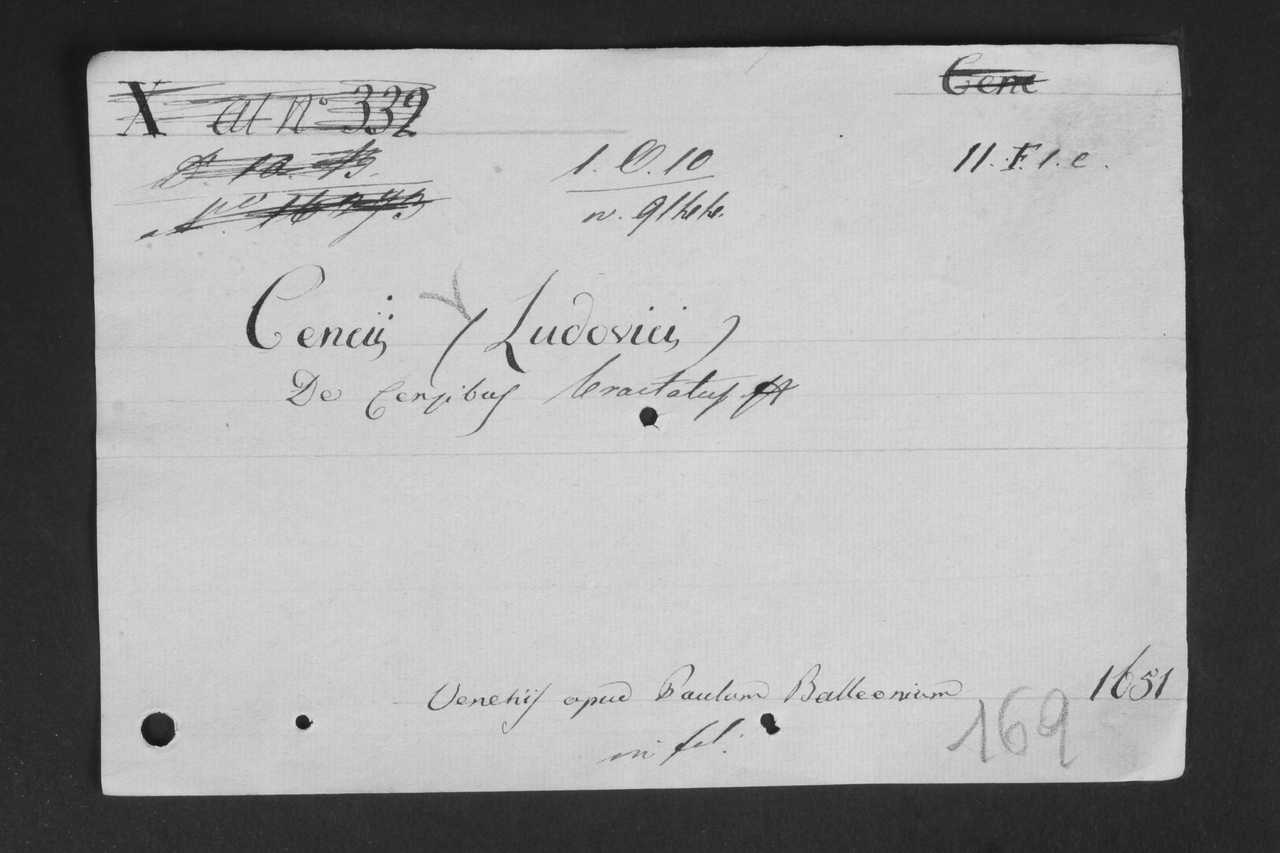 X al N° 332
Cenc
1. O. 10
11. F. 1. c.
n. 91
Cencij (Ludovici)
De Censibus Tractatus
Venetijs apud Paulum Balleonium 1651
in fol:
169